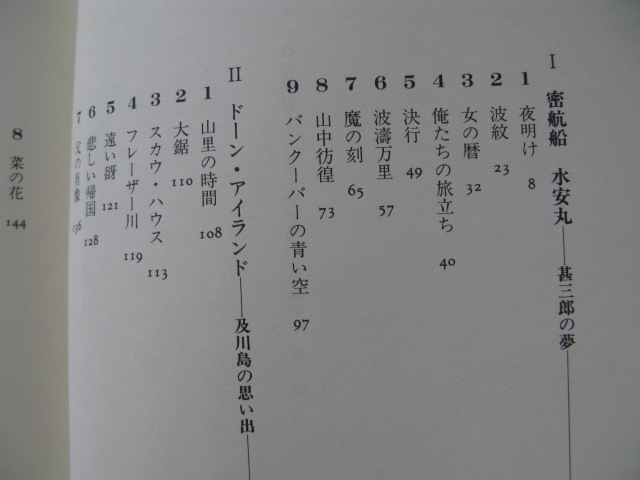 I 密航船 水安丸――甚三郎の夢
1 夜明け 8
2 波紋 23
3 女の暦 32
4 俺たちの旅立ち 40
5 決行 49
6 波濤万里 57
7 魔の刻 65
8 山中彷徨 73
9 バンクーバーの青い空 97
II ドーン・アイランド――及川島の思い出
1 山里の時間 108
2 大鋸 110
3 スカウ・ハウス 113
4 フレーザー川 119
5 遠い谺 121
6 悲しい帰国 128
7 父の肖像 136
8 菜の花 144